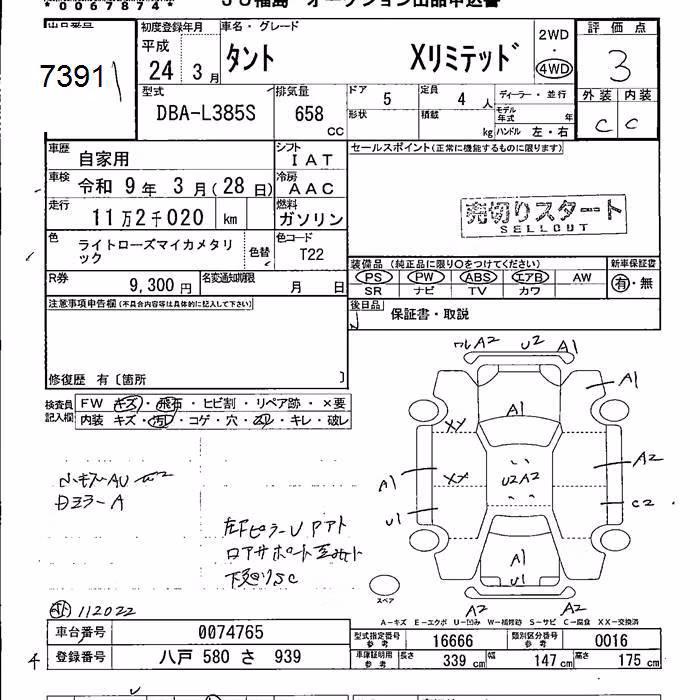 *0067874*
JU福島 オークション出品申込書
出品番号
7391
初度登録年月
平成
24 年 3 月
車名・グレード
タント Xリミテッド
2WD
・
4WD
評価点
3
外装 内装
C C
型式
DBA-L385S
排気量
658
CC
ドア
5
形状
定員
4 人
積載
kg
ディーラー・並行
モデル年式 年
ハンドル 左・右
車歴
自家用
シフト
IAT
セールスポイント(正常に機能するものに限ります)
車検
令和 9年 3月(28日)
冷房
AAC
走行
11万2千020 km
燃料
ガソリン
売切りスタート
SELLOUT
色
ライトローズマイカメタリック
色替
色コード
T22
装備品 (純正品に限り○をつけてください)
新車保証書
PS PW ABS エアB AW
SR ナビ TV カワ
有・無
R券
9,300 円
名変通知期限
月 日
後日品
保証書・取説
注意事項申告欄(不具合内容等は具体的に記入して下さい)
修復歴 有〔箇所 〕
検査員記入欄
FW キズ・飛石・ヒビ割・リペア跡・×要
内装 キズ・汚レ・コゲ・穴・スレ・キレ・破レ
A2 U2 A1
A1
A1
XX
A2
XX
U2A2
A1
U1
C2
A1
U1
A2 A2
小キズAU
Dミラー A
左Fピラー U Pアト
下廻りSC
スペア
112022
A-キズ E-エクボ U-凹み W-補修跡 S-サビ C-腐食 XX-交換済
車台番号 0074765
型式指定番号 参考 16666
類別区分番号 参考 0016
登録番号 八戸 580 さ 939
車庫証明用 参考
長さ 339 cm
幅 147 cm
高さ 175 cm
4